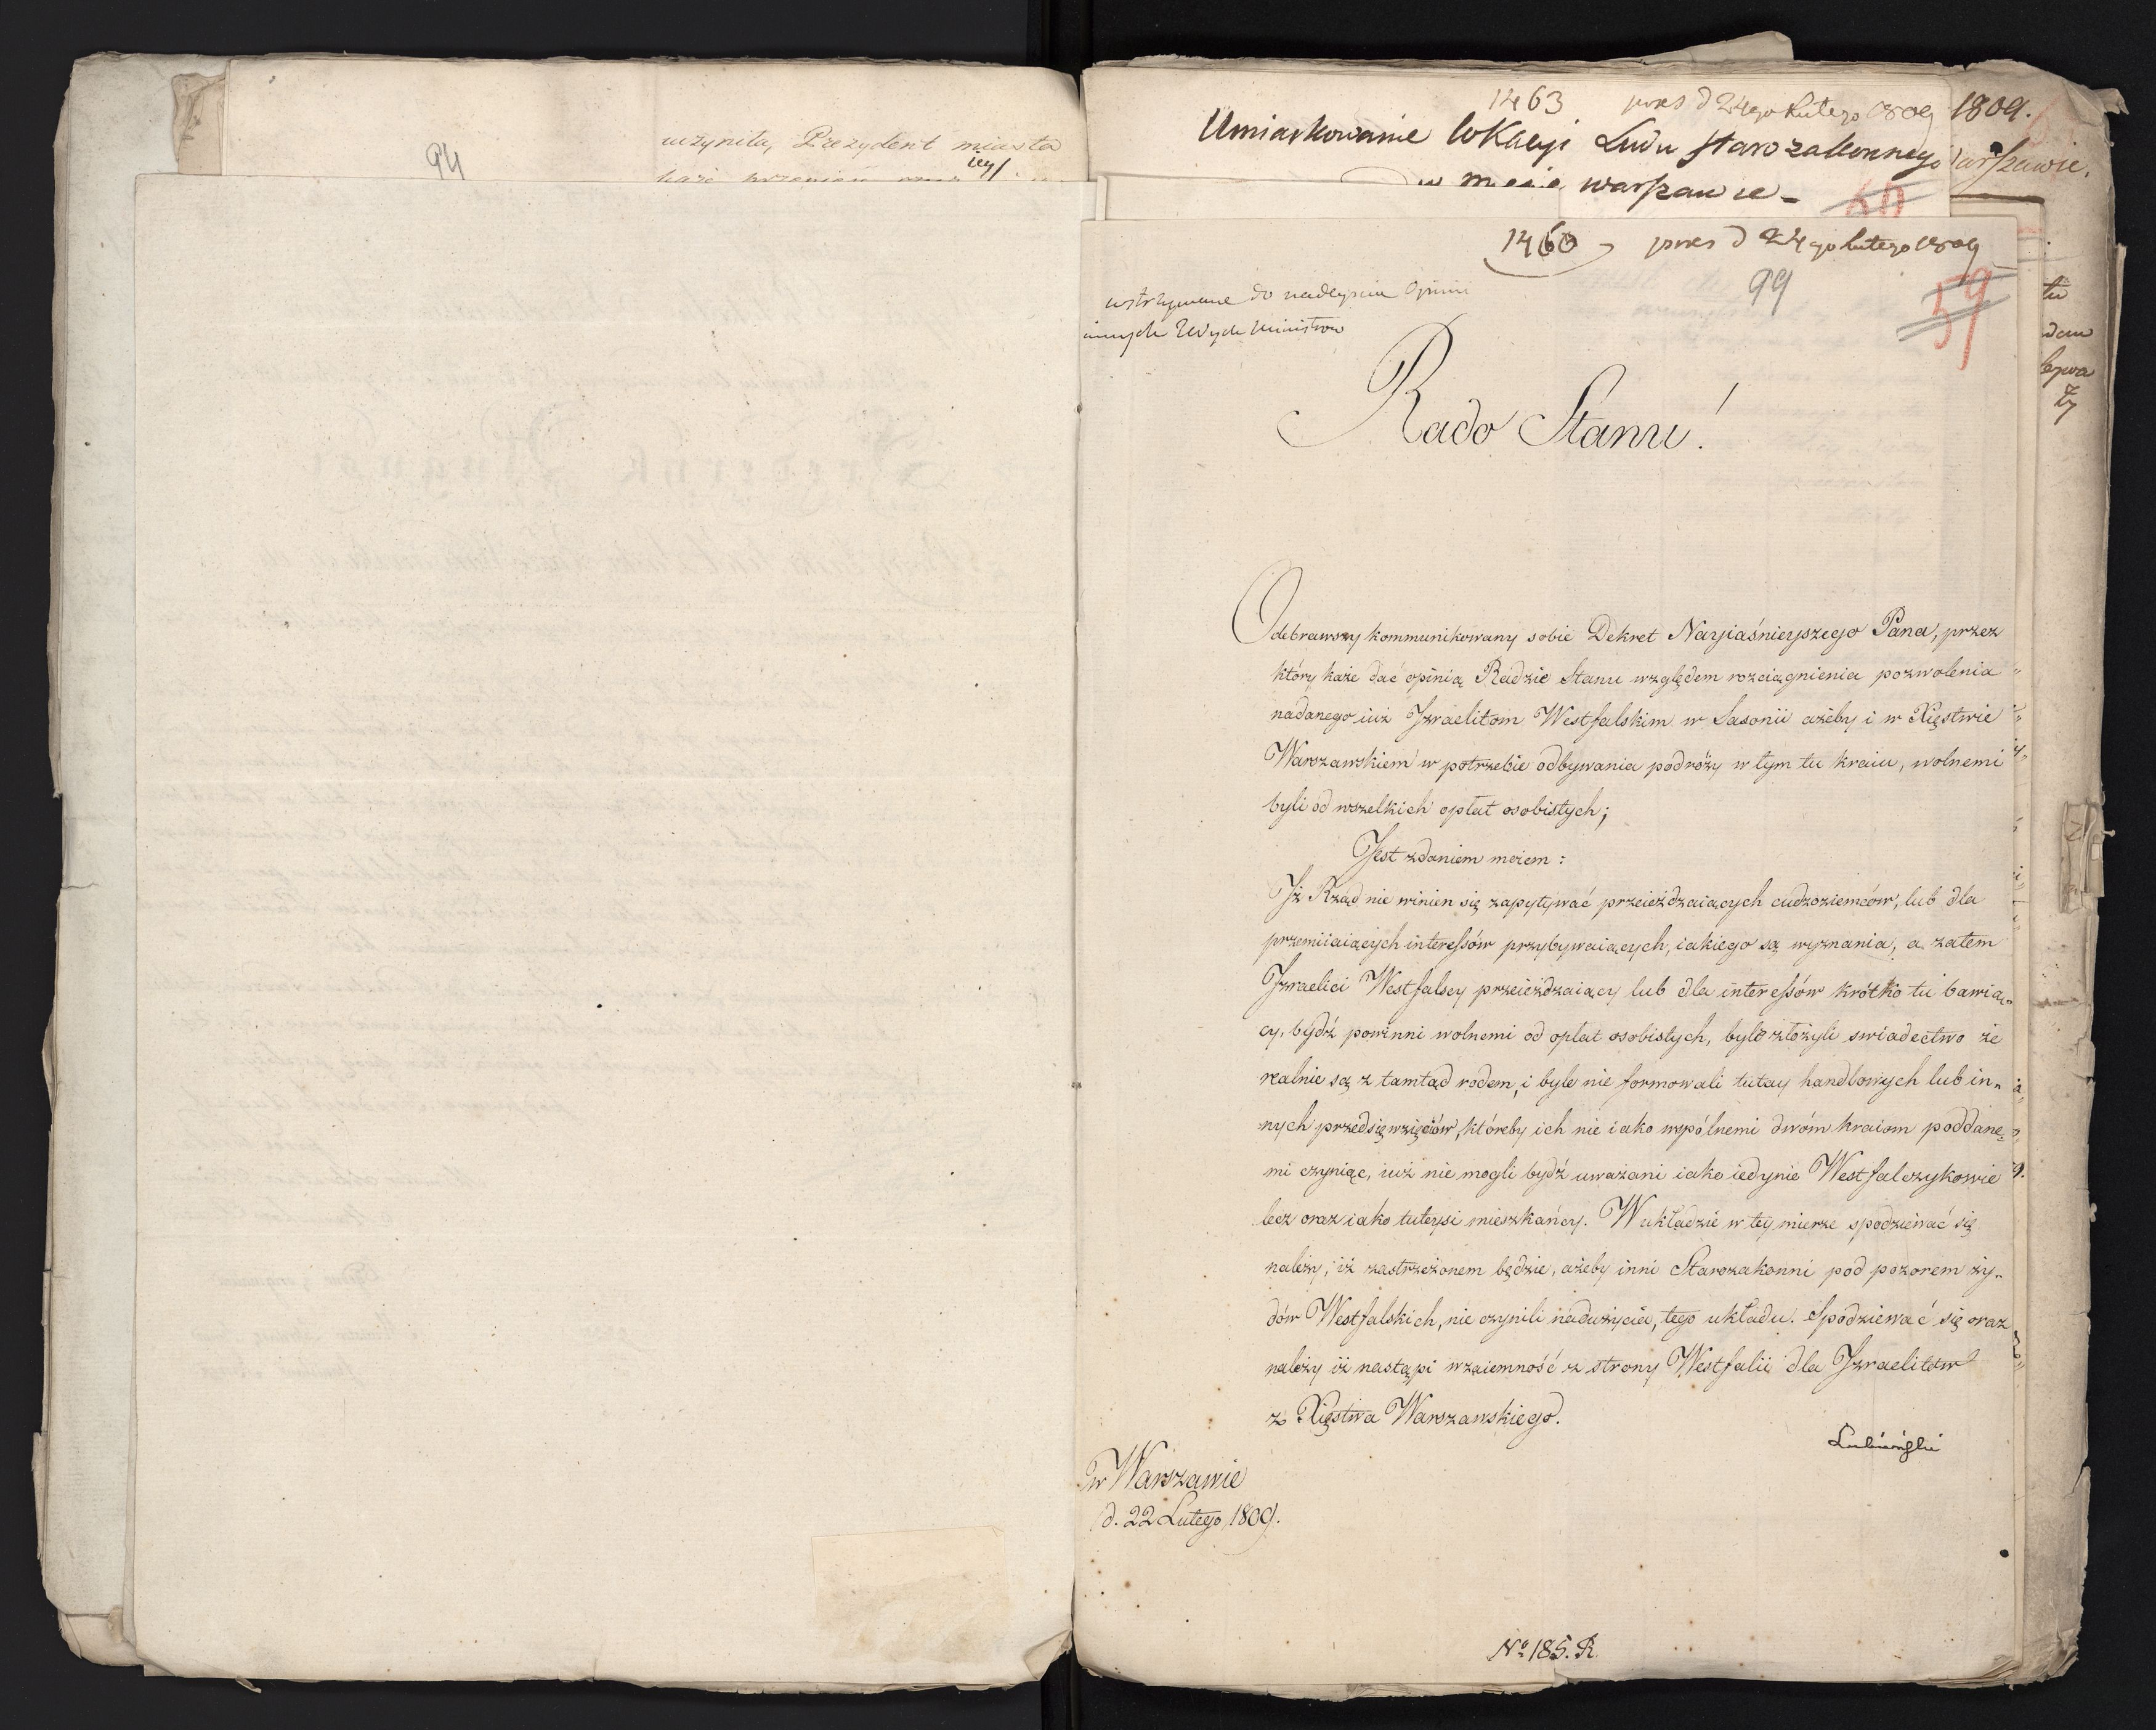 94
uczyniła, Prezydent miasta
iey
każe
1463 pres d 24go Lutego 1809
1809.
Umiarkowanie lokacyi Ludu starozakonnego
arszawie.
w mieście warszawie
60
1460 pres d 24go Lutego 1809
99
59
wstrzymane do nadeyścia Opinii
innych Ministrów
Rado Stanu!
Odebrawszy kommunikowany sobie Dekret Nayiaśnieyszego Pana, przez
który każe dać opinią Radzie Stanu względem rozciągnienia pozwolenia
nadanego iuż Izraelitom Westfalskim w Saxonii ażeby i w Xięstwie
Warszawskiem w potrzebie odbywania podróży w tym tu kraiu, wolnemi
byli od wszelkich opłat osobistych;
Jest zdaniem moiem:
Iż Rząd nie winien się zapytywać przeieżdzaiących cudzoziemców, lub dla
przemiiaiących interessów przybywaiących, iakiego są wyznania, a zatem
Izraelici Westfalscy przeieżdzaiący lub dla interessów krótko tu bawią„
cy, bydź powinni wolnemi od opłat osobistych, byle złożyli swiadectwo że
realnie są z tamtąd rodem, i byle nie formowali tutay handlowych lub in„
nych przedsięwzięciów, któreby ich nie iako wspólnemi dwóm kraiom poddane„
mi czyniąc, iuż nie mogli bydź uważani iako iedynie Westfalczykowie
lecz oraz iako tuteysi mieszkańcy. W układzie w tey mierze spodziewać się
należy, iż zastrzeżonem będzie, ażeby inni Starozakonni pod pozorem ży„
dów Westfalskich, nie czynili nadużycia, tego układu. Spodziewać się oraz
należy iż nastąpi wzaiemność z strony Westfalii dla Izraelitów
z Xięstwa Warszawskiego.
Lubieński
w Warszawie
d. 22 Lutego 1809.
No 185. R.